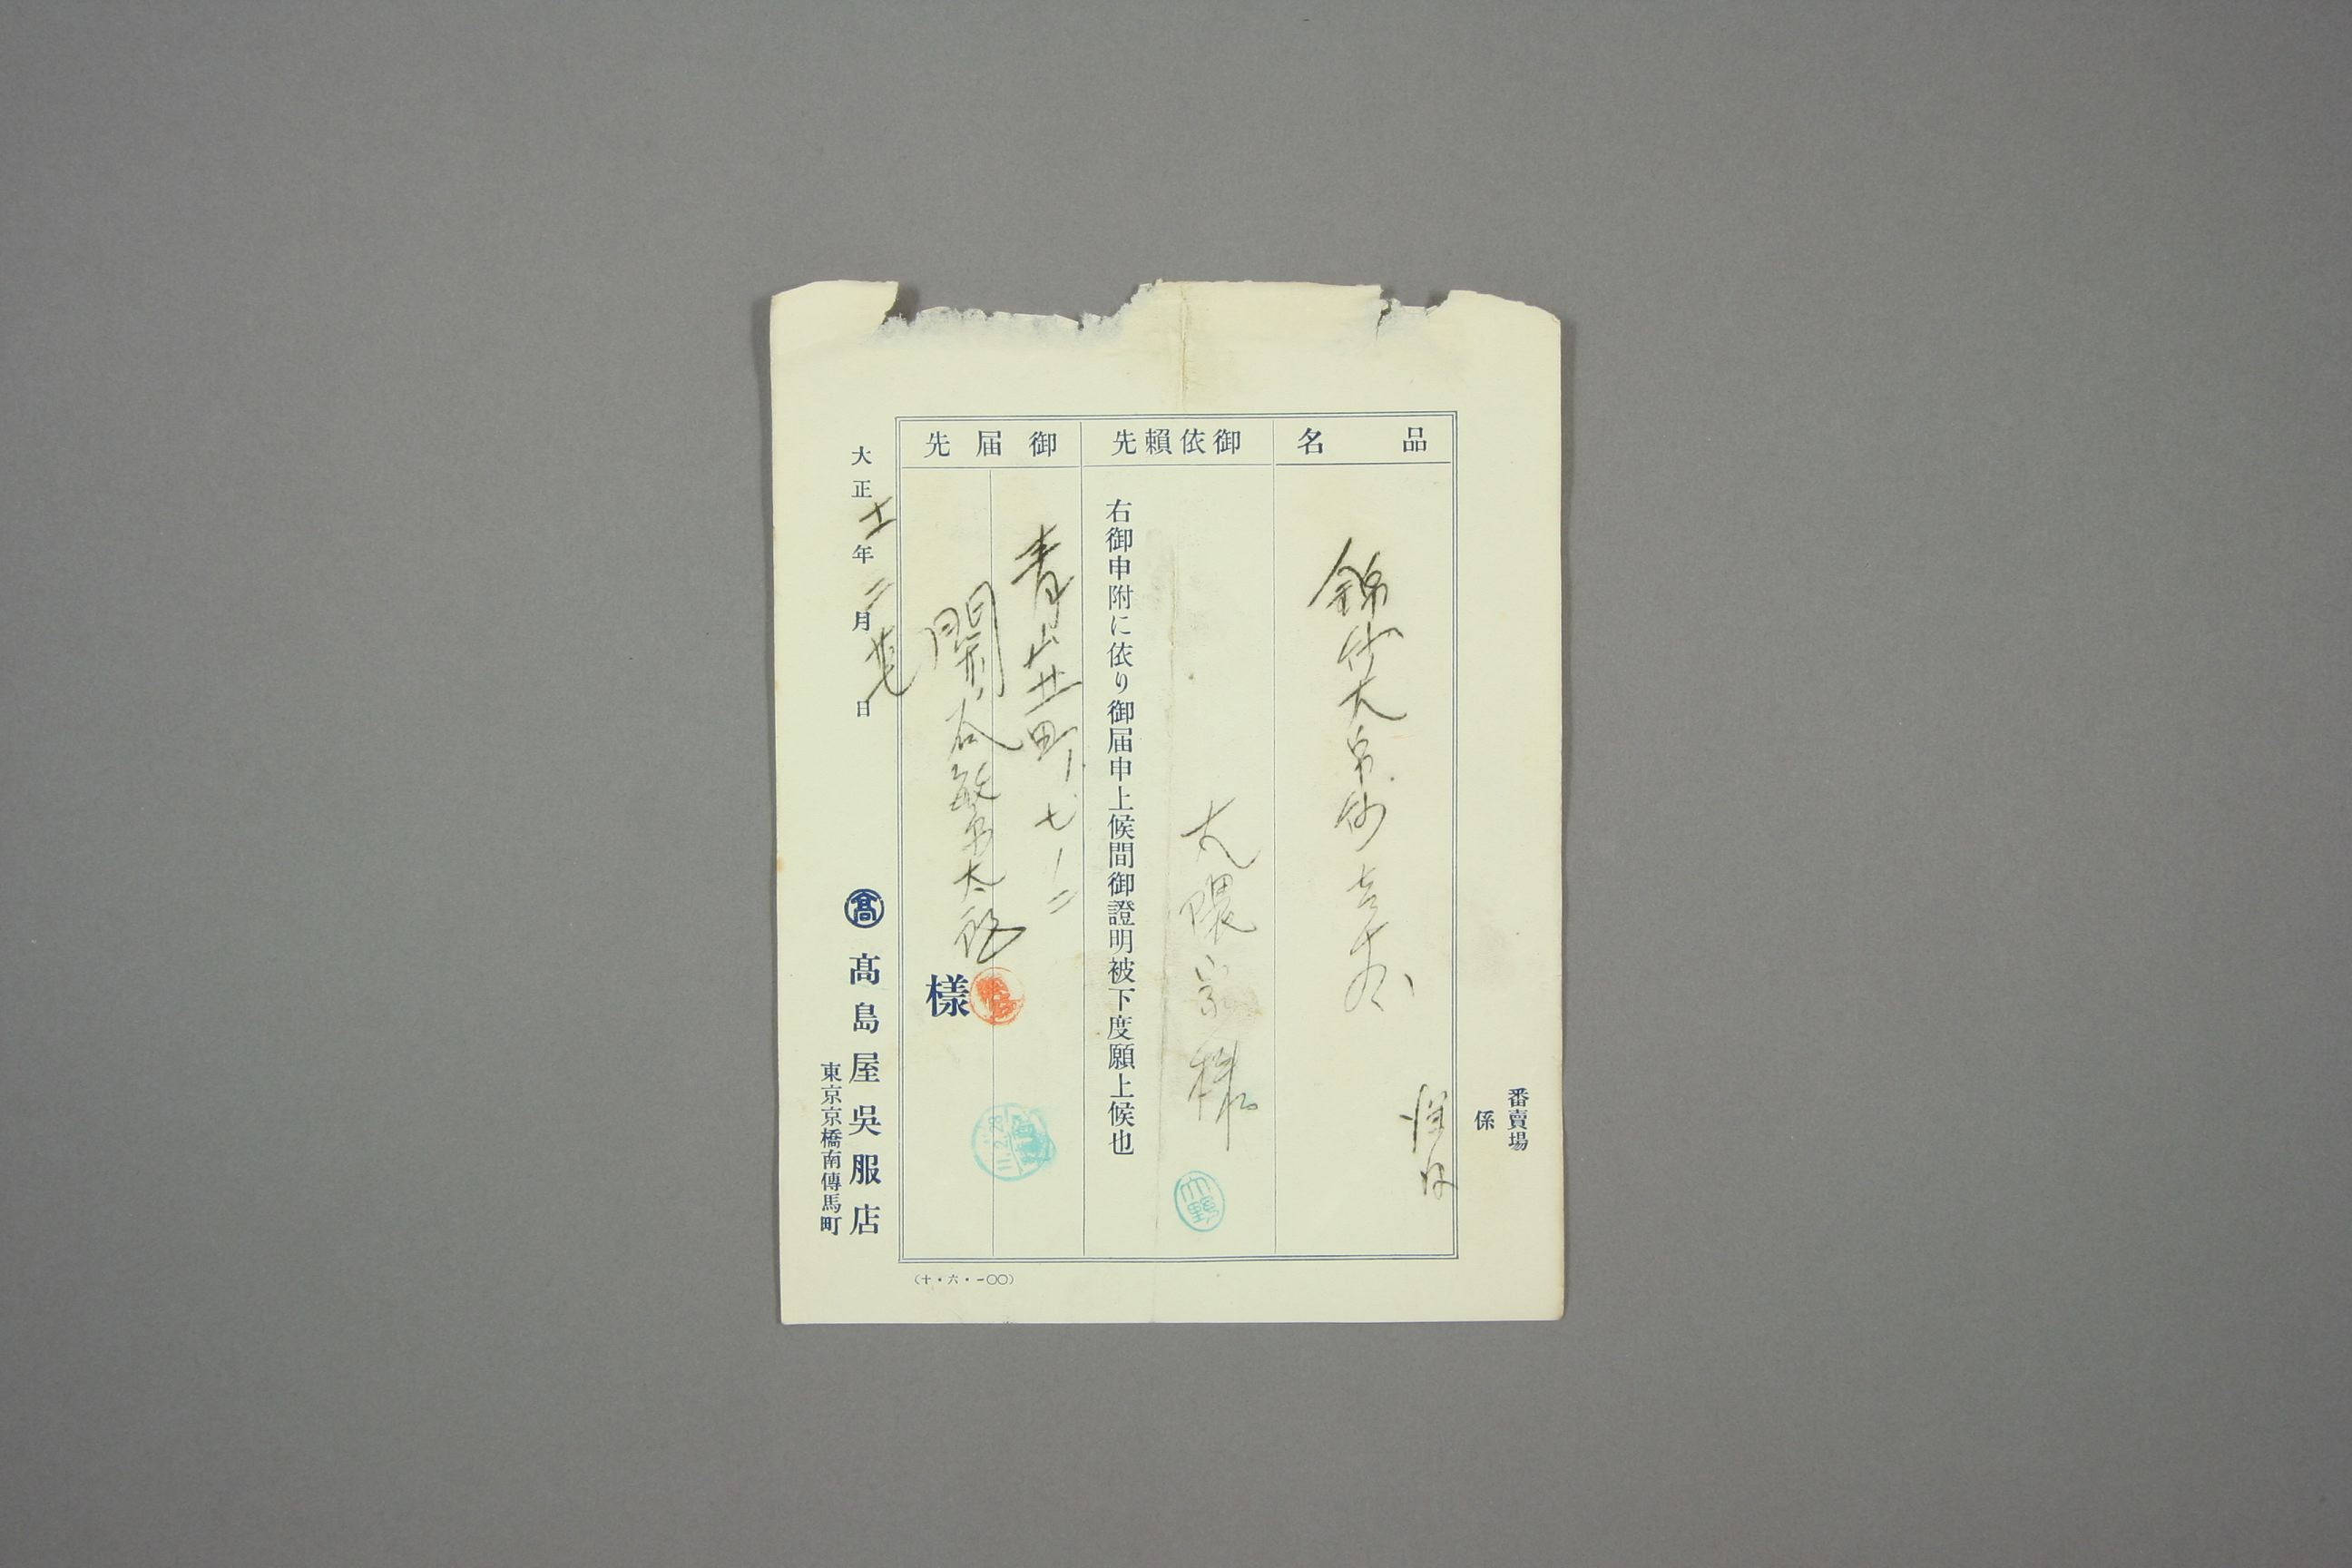 番賣場
係
品名
錦紗大帛紗
御依賴先
大隈家様
大野
右御申附に依り御届申上候間御證明被下度願上候也
御届先
青山北町ノ七ノ二
関谷敏太郎
樣
大正十一年二月廿七日
髙
髙島屋吳服店
東京京橋南傳馬町
(十・六・一〇〇)